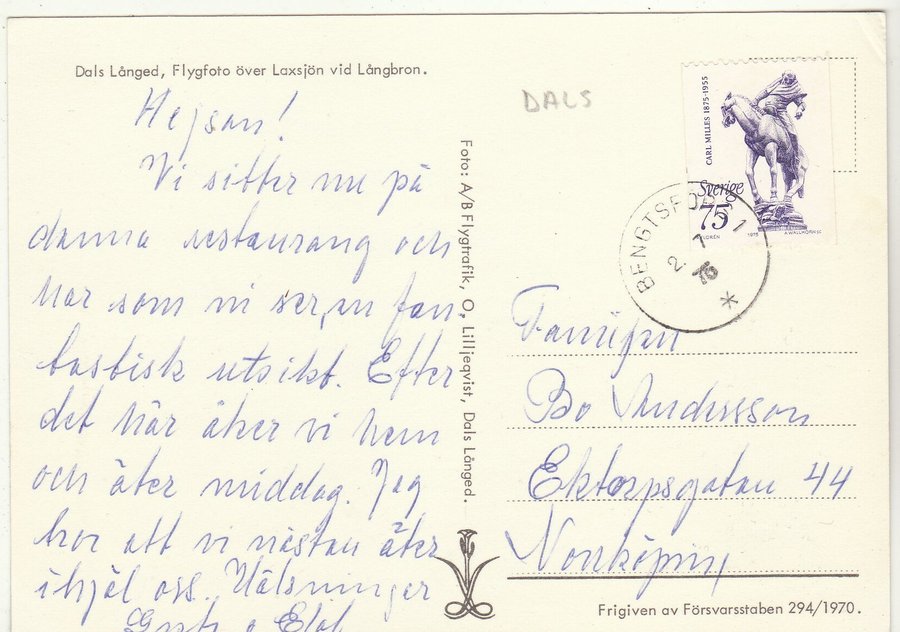 Dals Långed, Flygfoto över Laxsjön vid Långbron.
Hejsan!
Vi sitter nu på
denna restaurang och
har som ni ser, en fan
tastisk utsikt. Efter
det här åker vi hem
och äter middag. Jag
tror att vi nästan äter
ihjäl oss. Hälsningar
Foto: A/B Flygtrafik, O. Lilljeqvist, Dals Långed.
DALS
CARL MILLES 1875-1955
Sverige
75
1975
BENGTSFORS 1
2. 1
76
Familjen
Bo Andersson
Ektorpsgatan 44
Norrköping
Frigiven av Försvarsstaben 294/1970.